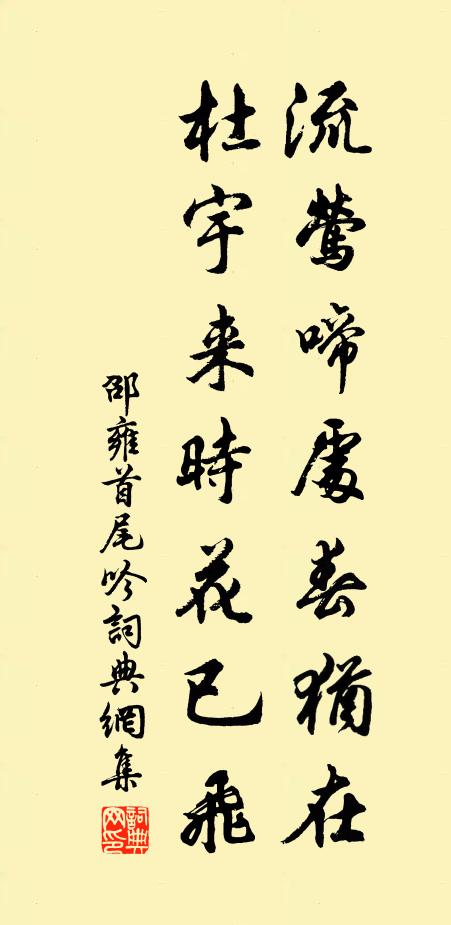 流莺啼處春猶在
杜宇来時花已飛
邵雍首尾吟詞典網集
詞典網印